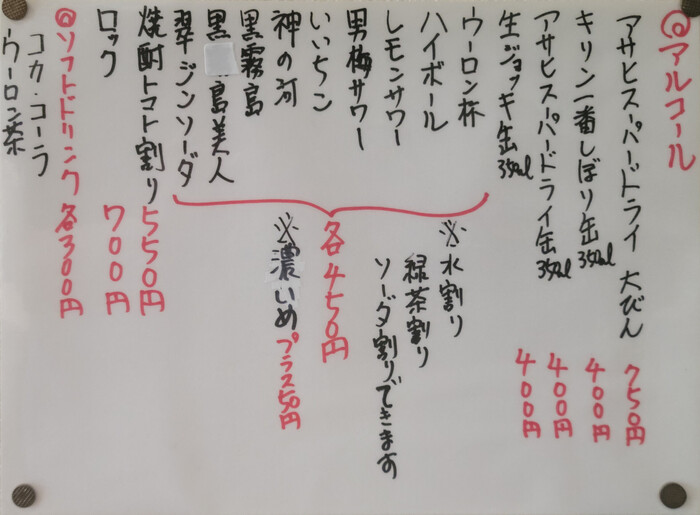 @アルコール
アサヒスーパードライ 大びん 750円
キリン一番しぼり缶350ml 400円
アサヒスーパードライ缶350ml 400円
生ジョッキ缶350ml 400円
ウーロン杯
ハイボール
レモンサワー
男梅サワー
いいちこ
神の河
黒霧島
黒 島美人
翠ジンソーダ
※水割り
緑茶割り
ソーダ割りできます
各450円
※濃いめプラス50円
焼酎トマト割り 550円
ロック 700円
@ソフトドリンク 各300円
コカ・コーラ
ウーロン茶